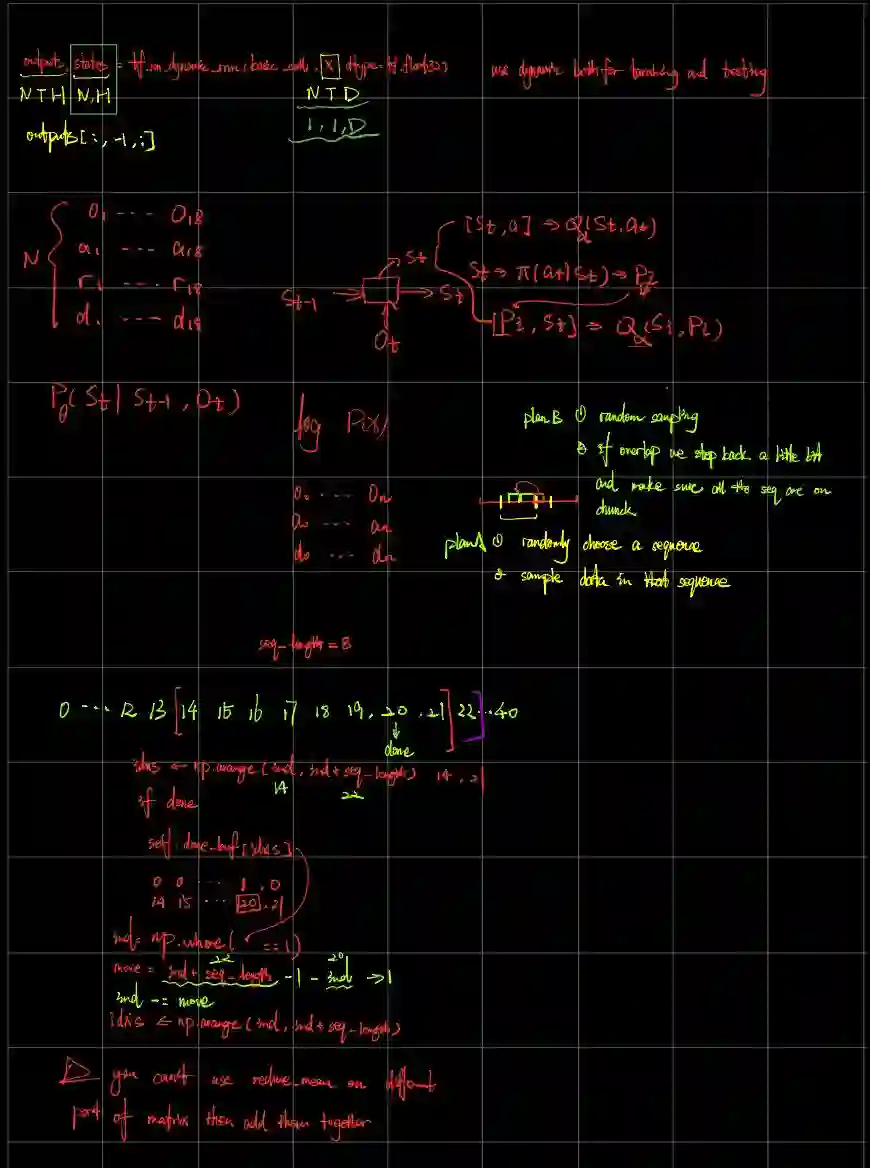 outputs, states = tf.nn.dynamic_rnn(basic_cell, X, dtype=tf.float32)
use dynamic both for training and testing
NTH N,H
NTD
1,1,D
outputs[:,-1,:]
O1 ---- O18
a1 ---- a18
N
r1 ---- r18
d1 ---- d18
[St,a] ⇒ Q(St,at)
St
St ⇒ π(at|St) ⇒
St-1
St
Ot
Pθ(St | St-1, Ot)
log P(x)
planB ① random sampling
② if overlap we step back a little bit
and make sure all the seq are on
chunck
planA ① randomly choose a sequence
② sample data in that sequence
seq-length = 8
0 ---- 12 13 [14 15 16 17 18 19, 20, 21] 22] ..40
done
idxs ← np.arange(ind, ind+seq-length) 14, 21
14 22
if done
self.done_buf[idxs]
0 0 ---- 1, 0
14 15 ---- 20, 21
ind = np.where( ==1)
22 20
move = ind + seq-length -1 - ind → 1
ind -= move
idxs ← np.arange(ind, ind+seq-length)
you can't use reduce_mean on different
part of matrix then add them together